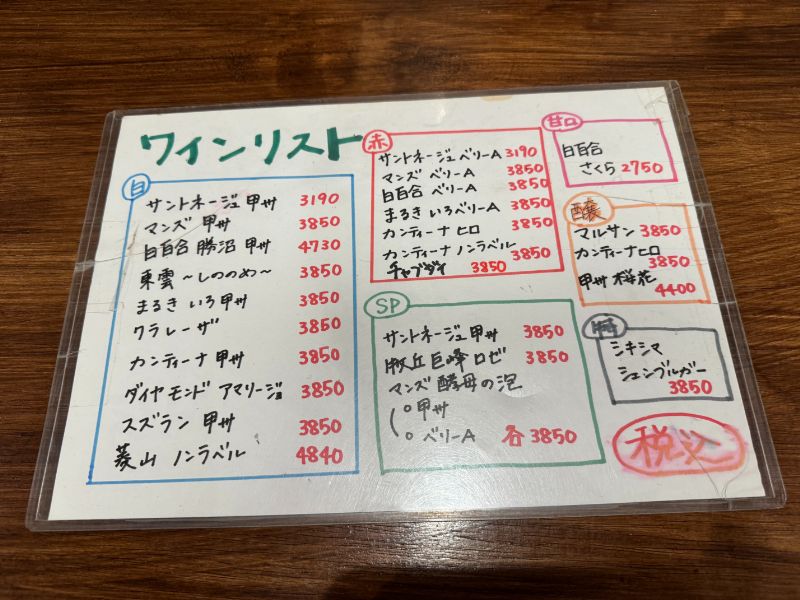 ワインリスト
白
サントネージュ 甲州 3190
マンズ 甲州 3850
白百合 勝沼 甲州 4730
東雲 ～しののめ～ 3850
まるき いろ 甲州 3850
クラレーザ 3850
カンティーナ 甲州 3850
ダイヤモンド アマリージョ 3850
スズラン 甲州 3850
菱山 ノンラベル 4840
赤
サントネージュ ベリーA 3190
マンズ ベリーA 3850
白百合 ベリーA 3850
まるき いろベリーA 3850
カンティーナ ヒロ 3850
カンティーナ ノンラベル 3850
チャブダイ 3850
SP
サントネージュ 甲州 3850
牧丘 巨峰 ロゼ 3850
マンズ 酵母の泡
○甲州
○ベリーA 各 3850
甘口
白百合
さくら 2750
醸
マルサン 3850
カンティーナヒロ
3850
甲州 桜花
4400
シキシマ
シュンブルガー
3850
税込